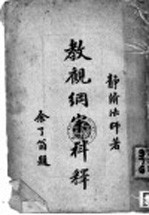 靜脩法師著
教觀綱宗科釋
余了翁題